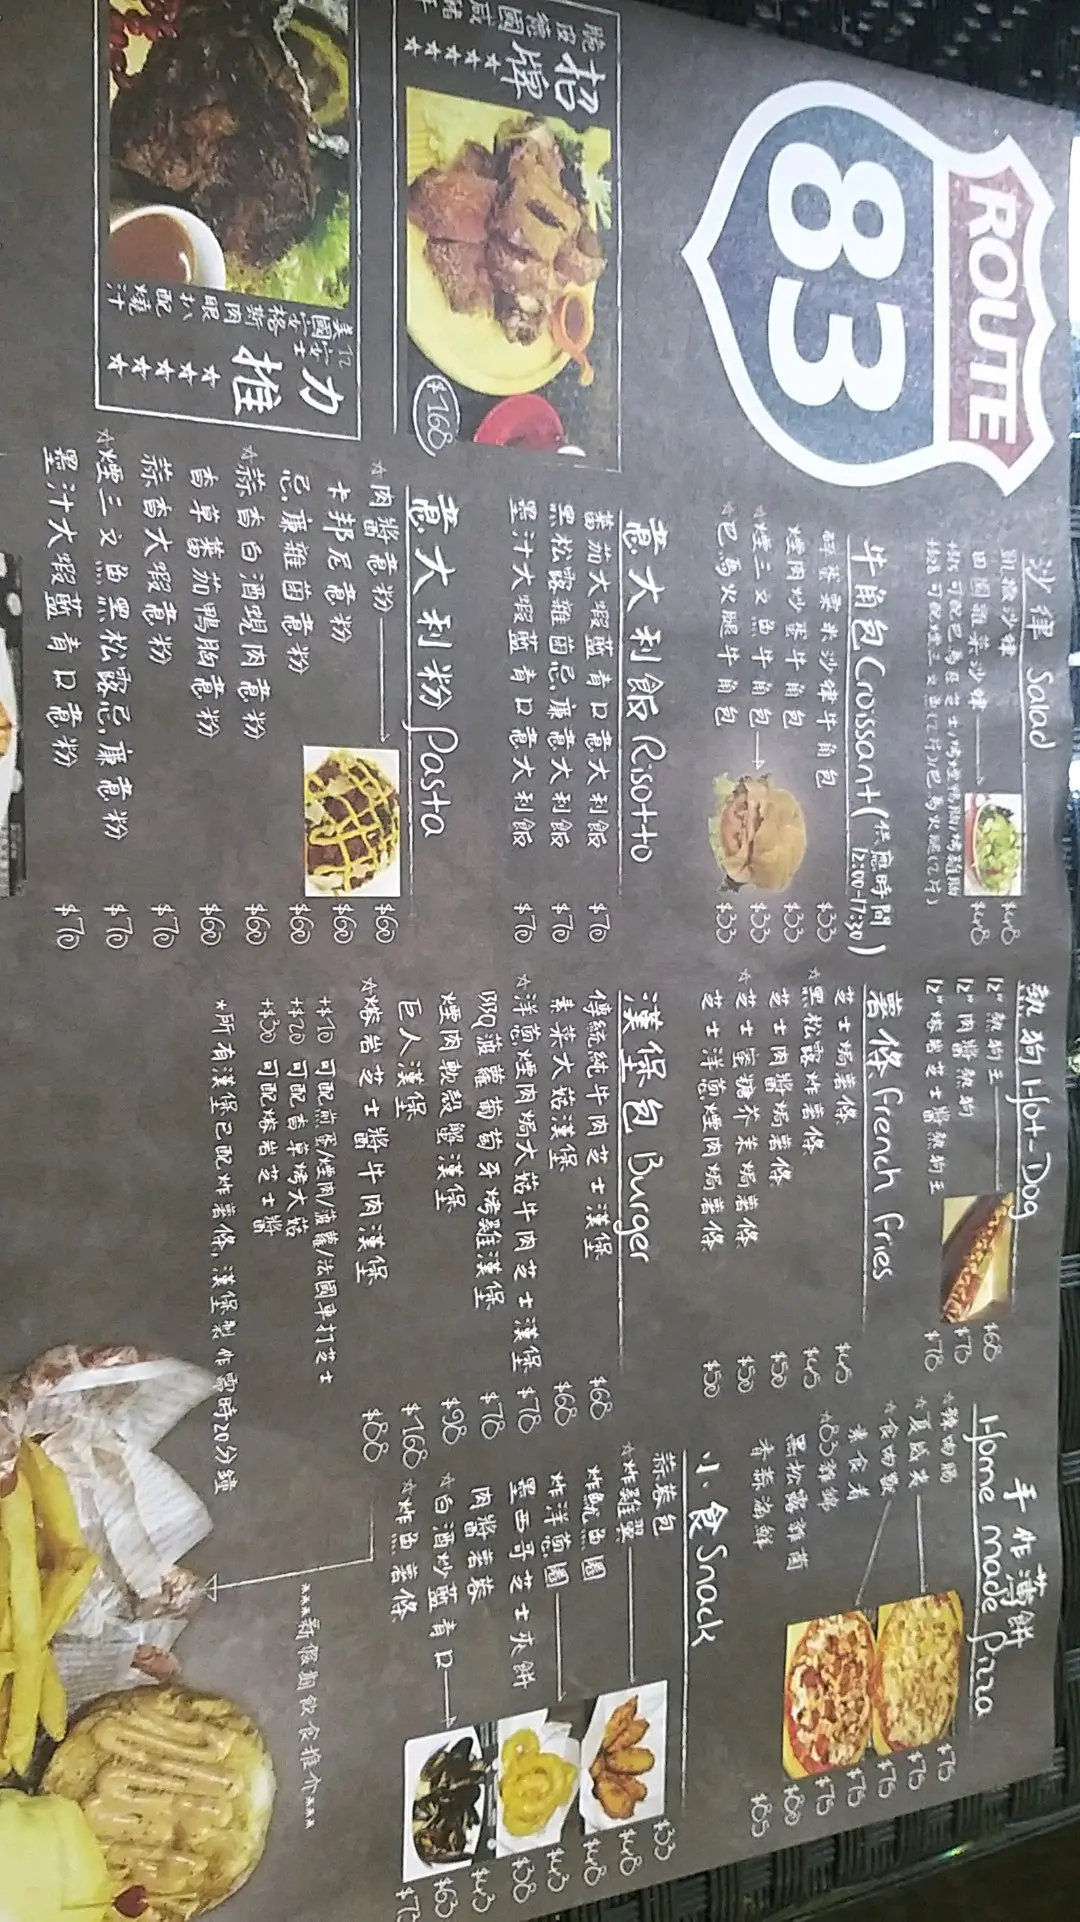 ROUTE
83
沙律 Salad
凱撒沙律 $48
田園雜菜沙律 $48
牛角包 Croissant (供應時間 12:00-17:30)
鮮蛋粟米沙律牛角包 $33
煙肉炒蛋牛角包 $33
☆煙三文魚牛角包 $33
☆巴馬火腿牛角包 $33
意大利飯 Risotto
蕃茄大蝦藍青口意大利飯 $70
黑松露雜菌忌廉意大利飯 $70
墨汁大蝦藍青口意大利飯 $70
意大利粉 Pasta
☆肉醬意粉 $60
卡邦尼意粉 $60
忌廉雜菌意粉 $60
☆蒜香白酒蜆肉意粉 $60
香草蕃茄鴨胸意粉 $60
蒜香大蝦意粉 $70
☆煙三文魚黑松露忌廉意粉 $70
墨汁大蝦藍青口意粉 $70
招牌
脆皮德國咸豬手
★★★★★
$168
力推
美國安格斯肉眼扒配燒汁
★★★★★
熱狗 Hot-Dog
12"熱狗王 $68
12"肉醬熱狗 $73
12"熔岩芝士醬熱狗王 $78
薯條 French Fries
芝士焗薯條 $45
☆黑松露炸薯條 $45
芝士肉醬焗薯條 $50
☆芝士蜜糖芥末焗薯條 $50
芝士洋蔥煙肉焗薯條 $50
漢堡包 Burger
傳統純牛肉芝士漢堡 $68
素菜大菇漢堡 $68
☆洋蔥煙肉焗大菇牛肉芝士漢堡 $78
BBQ菠蘿葡萄牙烤雞漢堡 $78
煙肉軟殼蟹漢堡 $98
巨人漢堡 $168
☆熔岩芝士醬牛肉漢堡 $88
+$10 可配煎蛋/煙肉/菠蘿/法國車打芝士
+$20 可配香草烤大菇
+$30 可配熔岩芝士醬
*所有漢堡已配炸薯條,漢堡製作需時20分鐘
手作薄餅
Home made Pizza
☆辣肉腸 $75
☆夏威夷 $75
☆食肉獸 $75
素食者 $75
☆83雜錦 $75
黑松露雜菌 $80
香蒜海鮮 $85
小食 Snack
蒜蓉包 $33
☆炸雞翼 $48
炸魷魚圈 $48
炸洋蔥圈 $43
墨西哥芝士夾餅 $38
肉醬薯蓉 $43
☆白酒炒藍青口 $63
☆炸魚薯條 $73
***新假期飲食推介***